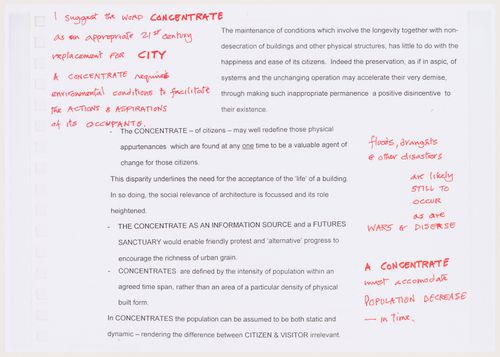 I suggest the word CONCENTRATE
as an appropriate 21st century
replacement for CITY
A CONCENTRATE requires
environmental conditions to facilitate
the ACTIONS & ASPIRATIONS
of its OCCUPANTS.
The maintenance of conditions which involve the longevity together with non-
desecration of buildings and other physical structures, has little to do with the
happiness and ease of its citizens. Indeed the preservation, as if in aspic, of
systems and the unchanging operation may accelerate their very demise,
through making such inappropriate permanence a positive disincentive to
their existence.
- The CONCENTRATE – of citizens – may well redefine those physical
appurtenances which are found at any one time to be a valuable agent of
change for those citizens.
This disparity underlines the need for the acceptance of the 'life' of a building.
In so doing, the social relevance of architecture is focussed and its role
heightened.
- THE CONCENTRATE AS AN INFORMATION SOURCE and a FUTURES
SANCTUARY would enable friendly protest and 'alternative' progress to
encourage the richness of urban grain.
- CONCENTRATES are defined by the intensity of population within an
agreed time span, rather than an area of a particular density of physical
built form.
In CONCENTRATES the population can be assumed to be both static and
dynamic – rendering the difference between CITIZEN & VISITOR irrelevant.
floods, droughts
& other disasters
are likely
STILL TO
OCCUR
as are
WARS & DISEASE
A CONCENTRATE
must accomodate
POPULATION DECREASE
— in time.